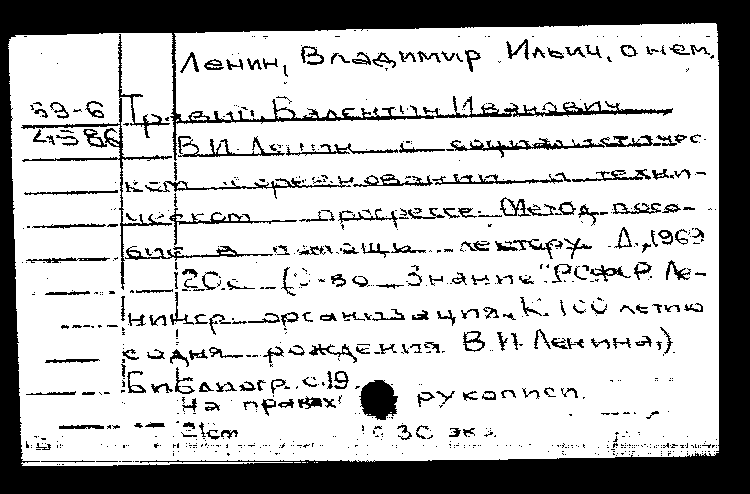 Ленин, Владимир Ильич, о нем.
59-6 Травин, Валентин Иванович
4586 В.И. Ленин о социалистичес-
ком соревновании и техни-
ческом прогрессе. Метод. посо-
бие в помощь лектору. Л., 1969
20с. (О-во "Знание" РСФСР. Ле-
нингр. организация. К 100 летию
со дня рождения В.И. Ленина.)
Библиогр. с. 19.
На правах рукописи.
21см 30 экз.